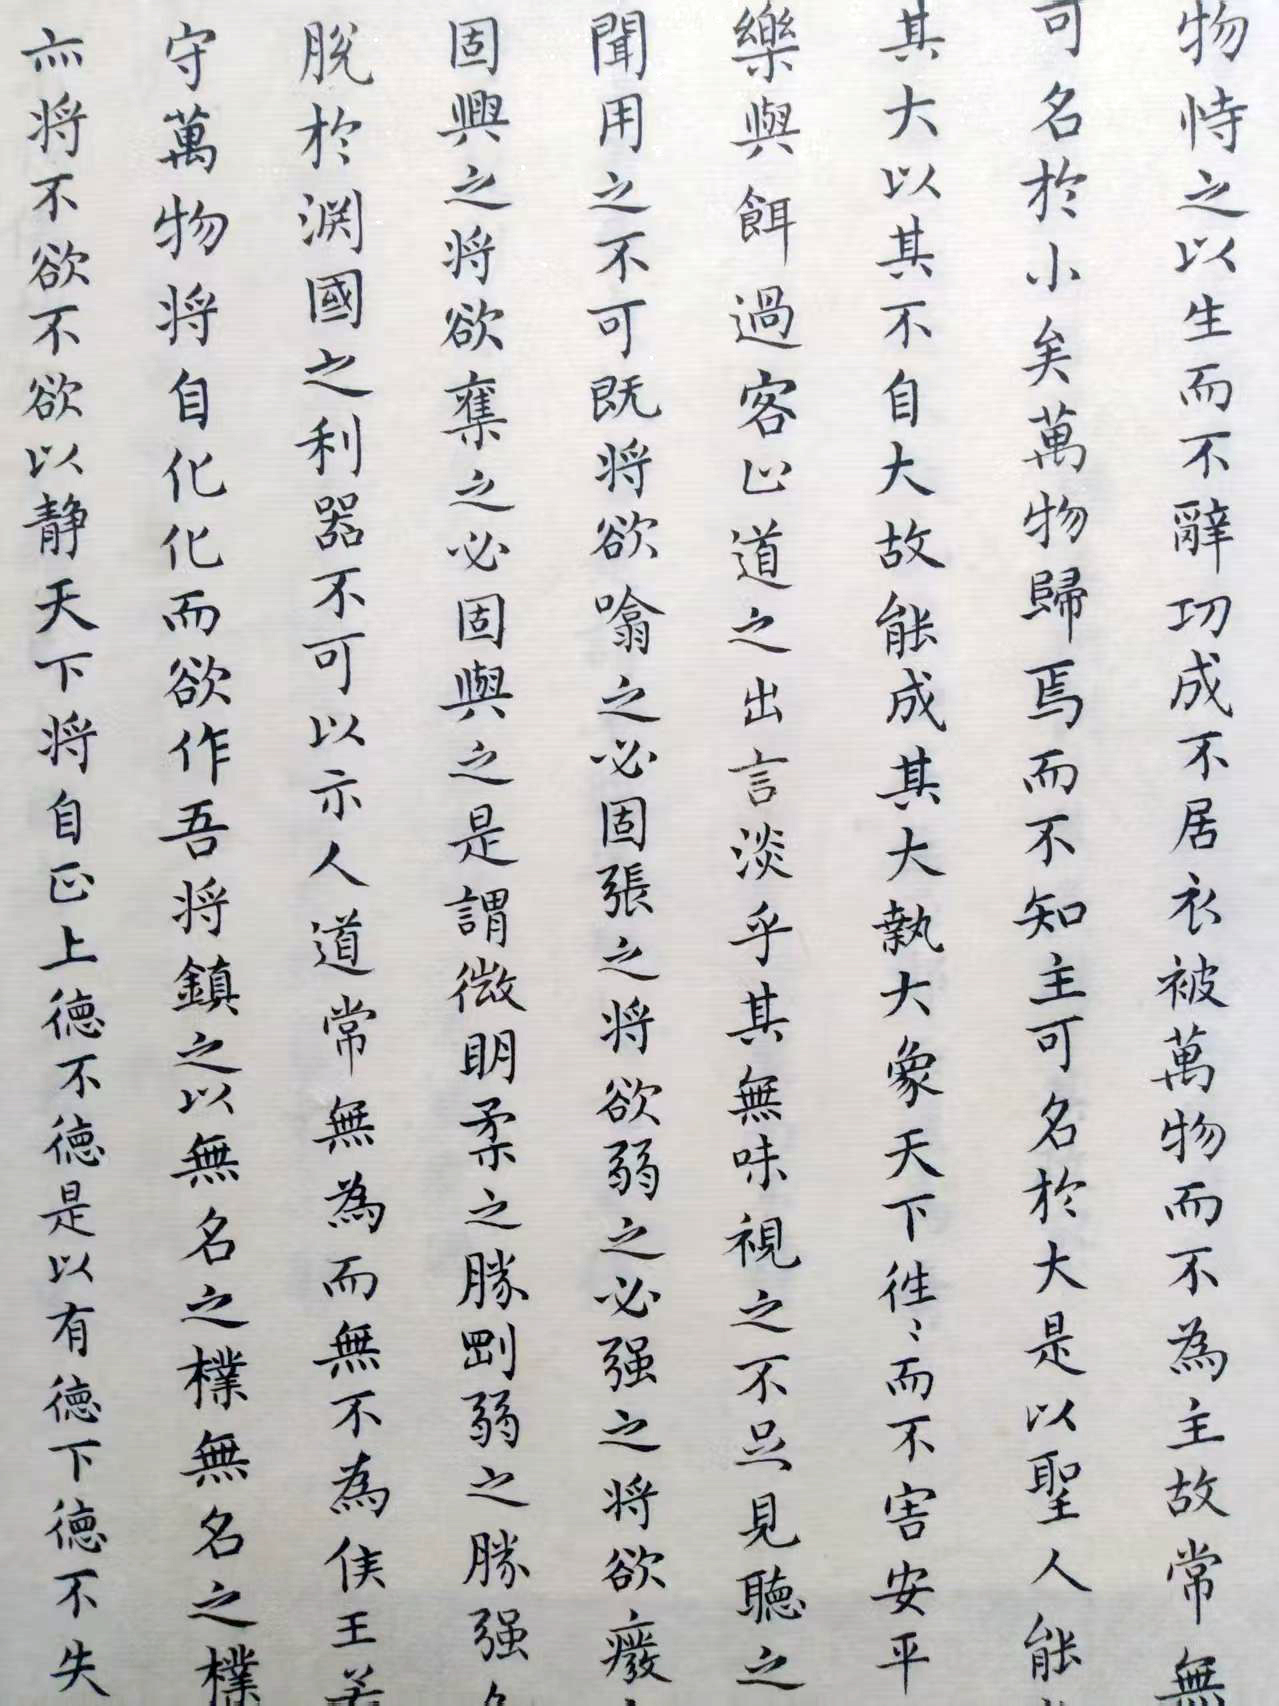 物恃之以生而不辭功成不居衣被萬物而不為主故常無
可名於小矣萬物歸焉而不知主可名於大是以聖人能
其大以其不自大故能成其大執大象天下往〻而不害安平
樂與餌過客止道之出言淡乎其無味視之不足見聽之
聞用之不可既將欲噏之必固張之将欲弱之必强之将欲癈
固興之将欲奪之必固與之是謂微明柔之勝剛弱之勝强
脫於淵國之利器不可以示人道常無為而無不為侯王若
守萬物将自化化而欲作吾将鎮之以無名之樸無名之樸
亦将不欲不欲以静天下将自正上徳不徳是以有徳下徳不失